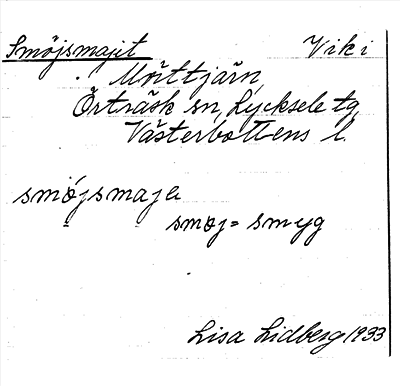 Smöjsmajit Vik i
Mörttjärn,
Örträsk sn, Lycksele tg,
Västerbottens l.
smöjsmaje
smøj = smyg
Lisa Lidberg 1933